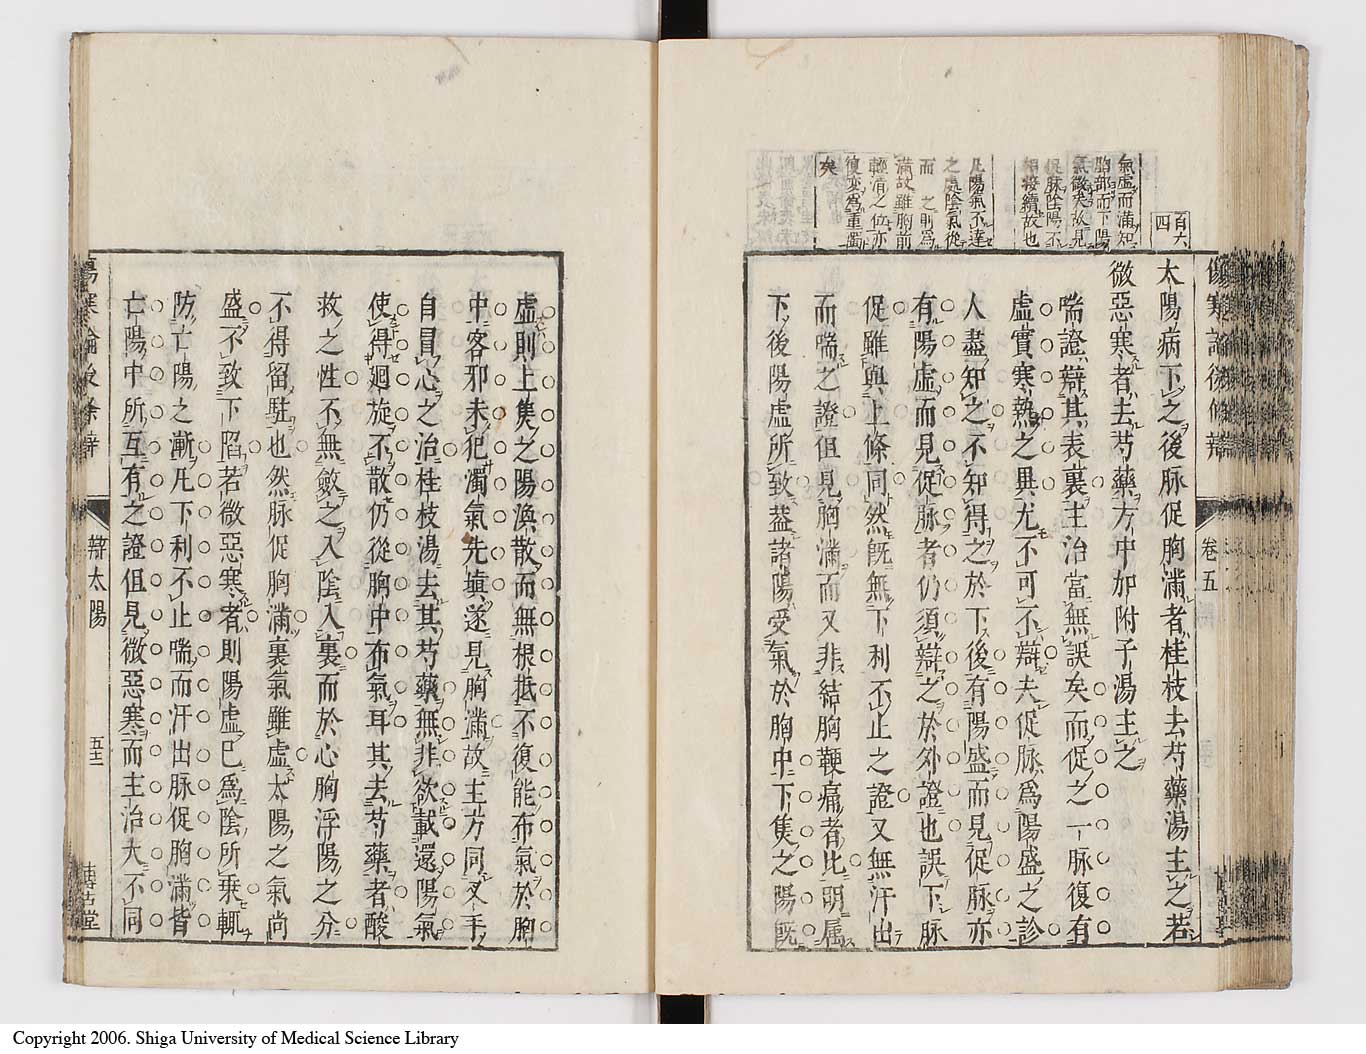 傷寒論後條辯 卷五
百六四
氣虛而滿知
胸部而下陽
氣微矣故見
促脉陰陽不
相接續故也
凡陽氣不達
之處陰氣從
而之則爲
滿故雖胸前
輕清之位亦
復変爲重濁
矣
太陽病下之後脉促胸滿者桂枝去芍藥湯主之若
微惡寒者去芍藥方中加附子湯主之
喘證辯其表裏主治當無誤矣而促之一脉復有
虛實寒熱之異尤不可不辯夫促脉爲陽盛之診
人盡知之不知得之於下後有陽盛而見促脉亦
有陽虛而見促脉者仍須辯之於外證也誤下脉
促雖與上條同然旣無下利不止之證又無汗出
而喘之證但見胸滿而又非結胸鞕痛者比明屬
下後陽虛所致蓋諸陽受氣於胸中下集之陽旣
虛則上集之陽渙散而無根抵不復能布氣於胸
中客邪未犯濁氣先塡遂見胸滿故主方同叉手
自冒心之治桂枝湯去其芍藥無非欲載還陽氣
使得廻旋不散仍從胸中布氣耳其去芍藥者酸
救之性不無斂之入陰入裏而於心胸浮陽之分
不得留駐也然脉促胸滿裏氣雖虛太陽之氣尚
盛不致下陷若微惡寒者則陽虛已爲陰所乘輒
防亡陽之漸凡下利不止喘而汗出脉促胸滿皆
亡陽中所互有之證但見微惡寒而主治大不同
傷寒論後條辯 辯太陽 五十三 博古堂
Copyright 2006. Shiga University of Medical Science Library